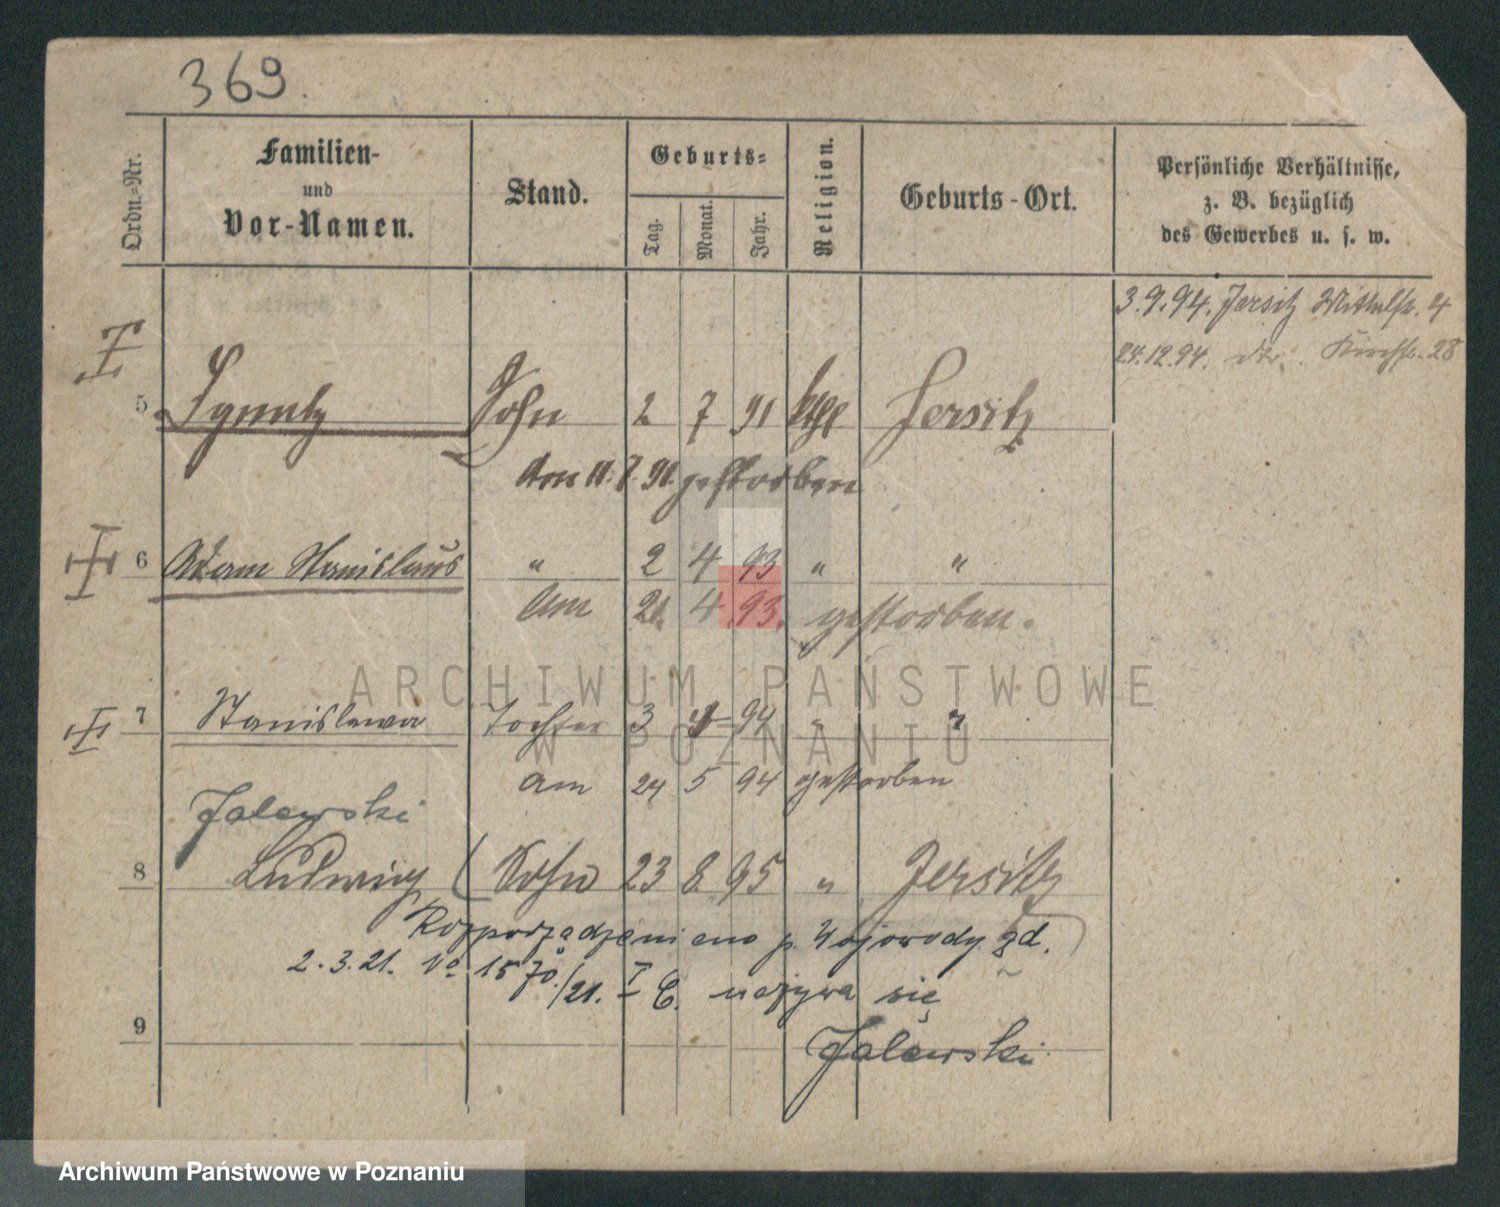 369.
Ordn.-Nr.
Familien-
und
Vor-Namen.
Stand.
Geburts-
Tag.
Monat.
Jahr.
Religion.
Geburts-Ort.
Persönliche Verhältnisse,
z. B. bezüglich
des Gewerbes u. s. w.
3.9.94. Jersitz Mittelstr. 4
24.12.94. dto. Kirchstr. 28
5 Ignatz Sohn 2 7 91 kath Jersitz
Am 11. 7. 91. gestorben
6 Adam Stanislaus " 2 4 93 " "
Am 21. 4. 93. gestorben.
7 Stanislawa Tochter 3 94 " "
am 24 5 94 gestorben
Jalewski
8 Ludwig ( Sohn 23 8 95 " Jersitz
Rozporządzenieno p. Wojewody zd.
2.3.21. No 1570/21. I C. nazywa się
9
Jalewski
ARCHIWUM PAŃSTWOWE
W POZNANIU
Archiwum Państwowe w Poznaniu